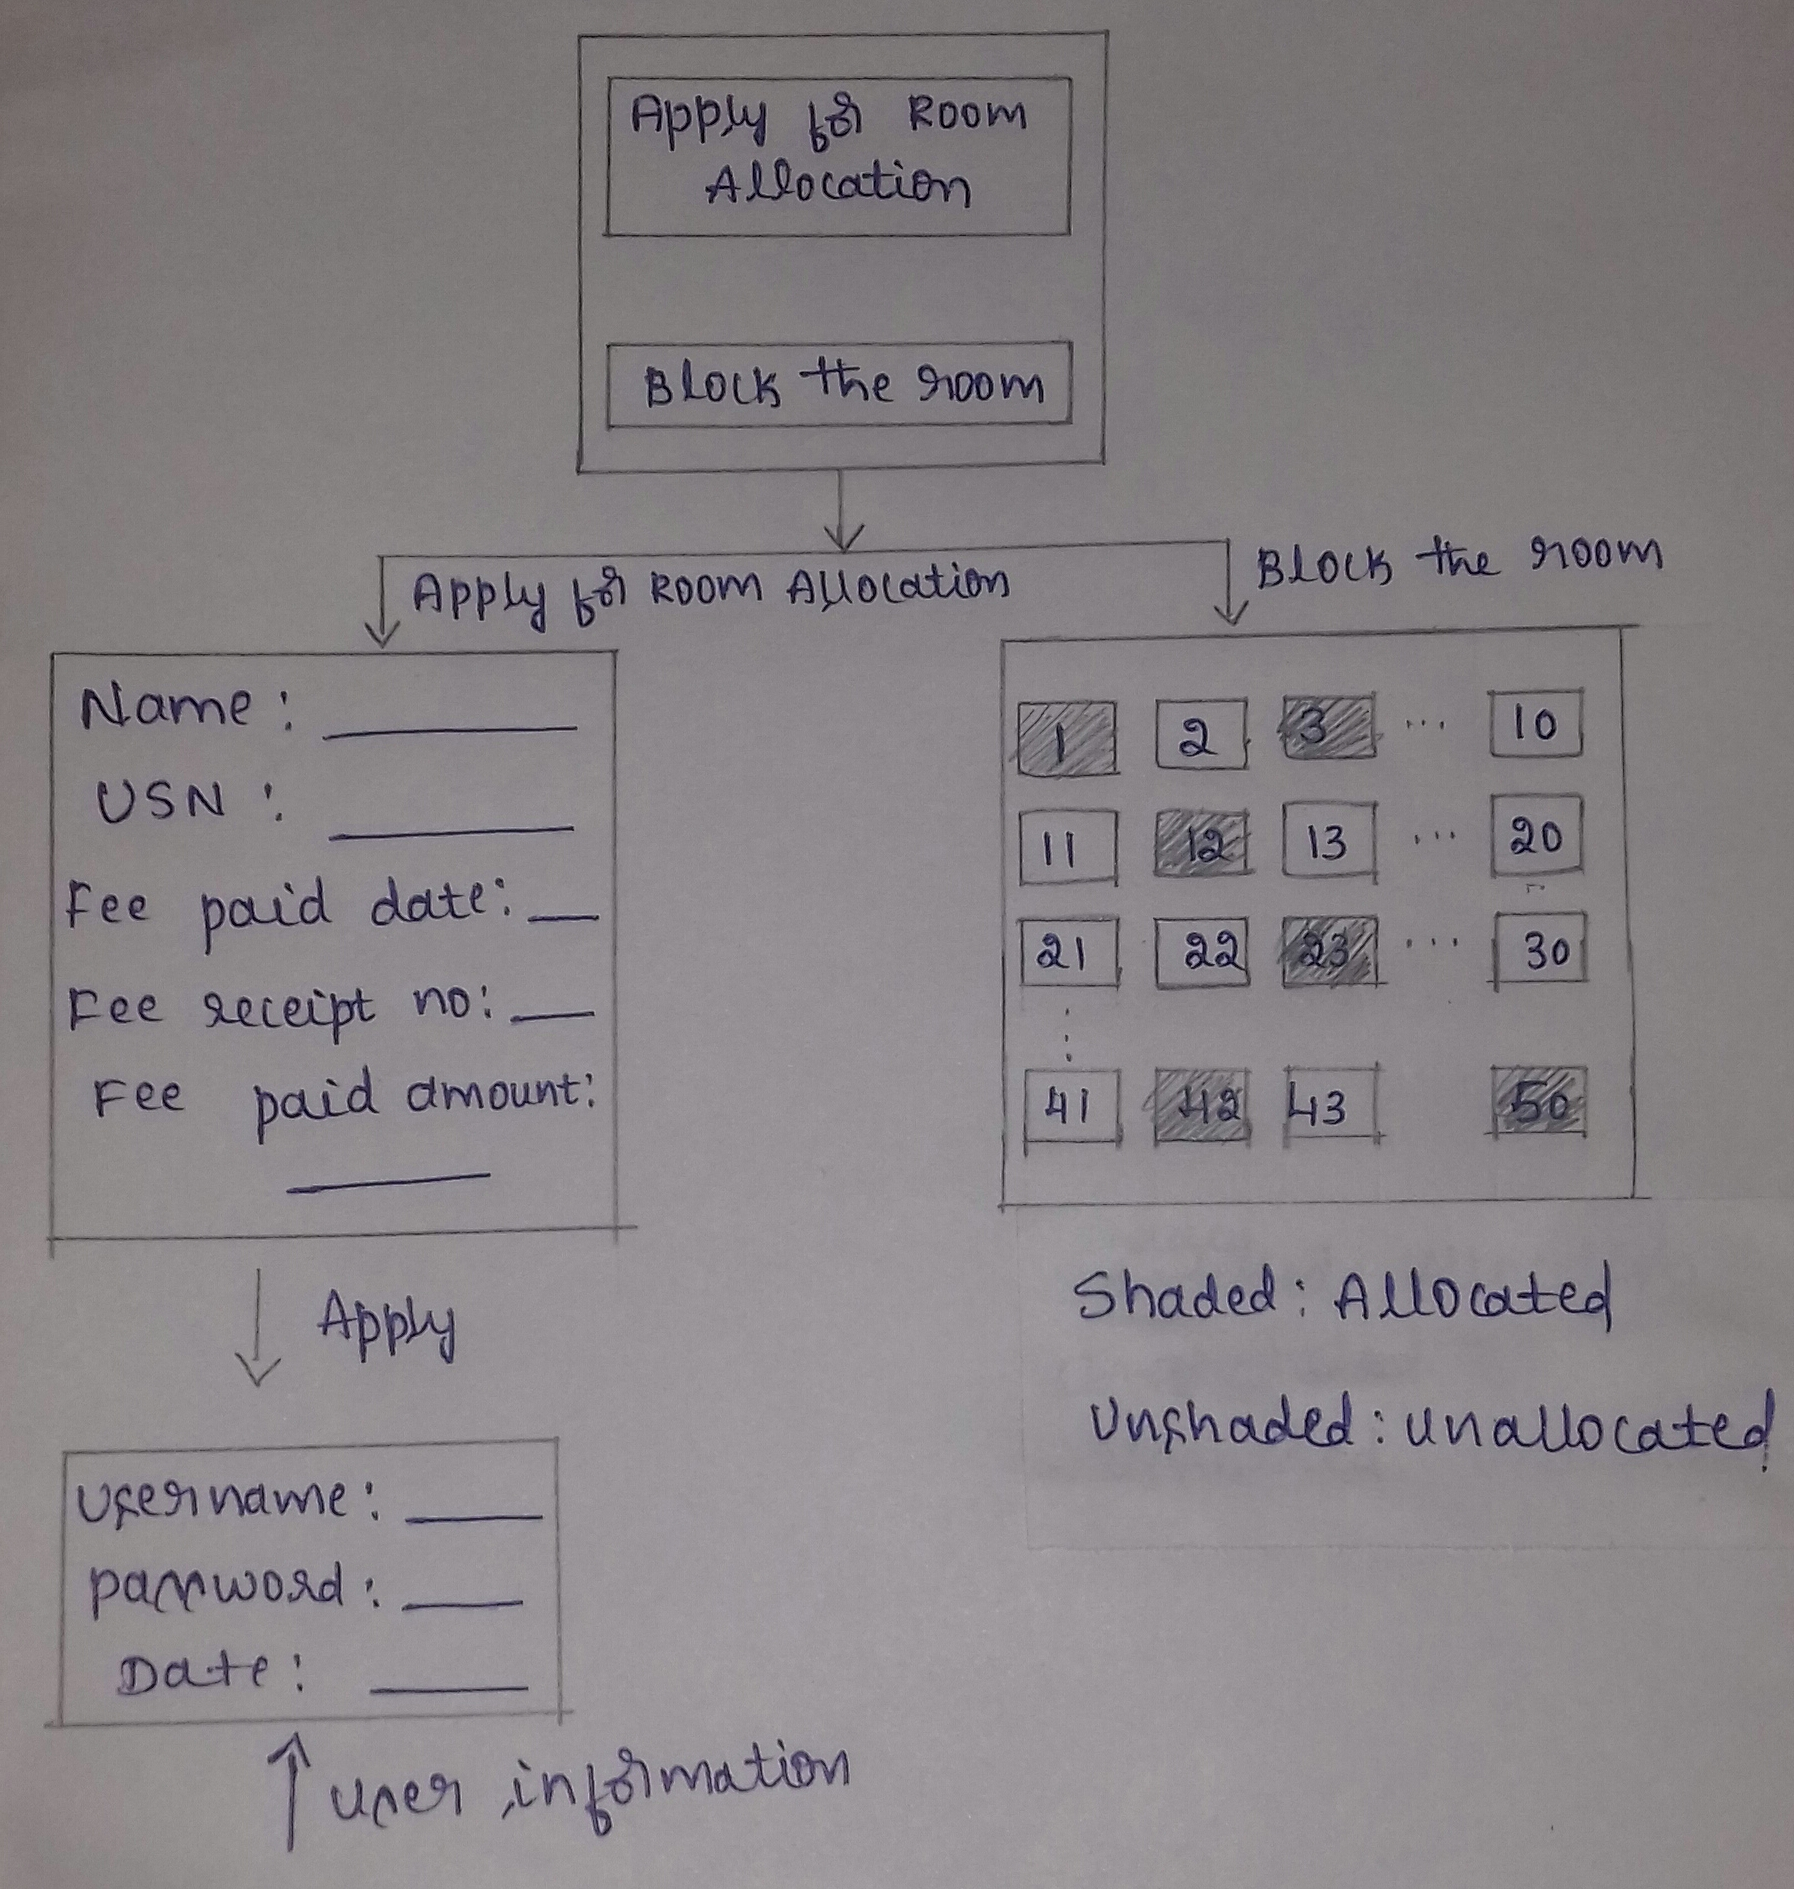 Apply for Room
Allocation
Block the room
Apply for Room Allocation
Block the room
Name :
USN :
Fee paid date:
Fee receipt no:
Fee paid amount:
1 2 3 ... 10
11 12 13 ... 20
21 22 23 ... 30
41 42 43 50
Shaded : Allocated
Unshaded : unallocated
Apply
Username :
password :
Date :
user information